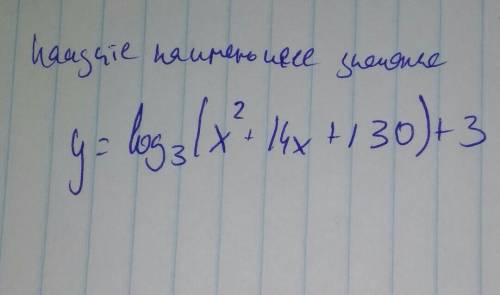 Найдите наименьшее значение
y = log₃(x² - 14x + 130) + 3